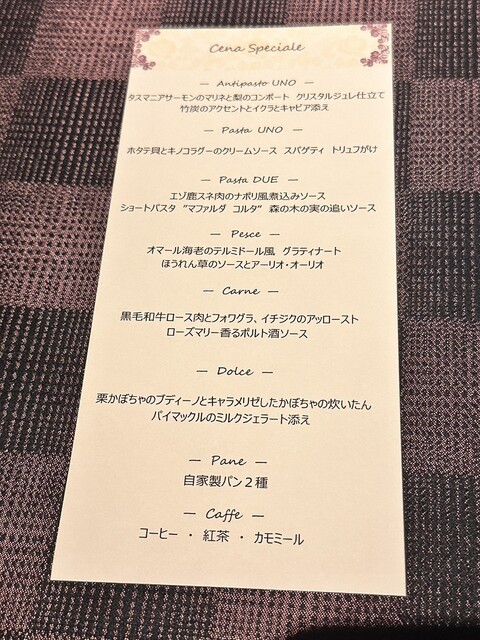 Cena Speciale
— Antipasto UNO —
タスマニアサーモンのマリネと梨のコンポート クリスタルジュレ仕立て
竹炭のアクセントとイクラとキャビア添え
— Pasta UNO —
ホタテ貝とキノコラグーのクリームソース スパゲティ トリュフがけ
— Pasta DUE —
エゾ鹿スネ肉のナポリ風煮込みソース
ショートパスタ "マファルダ コルタ" 森の木の実の追いソース
— Pesce —
オマール海老のテルミドール風 グラティナート
ほうれん草のソースとアーリオ・オーリオ
— Carne —
黒毛和牛ロース肉とフォワグラ、イチジクのアッロースト
ローズマリー香るポルト酒ソース
— Dolce —
栗かぼちゃのブディーノとキャラメリゼしたかぼちゃの炊いたん
バイマックルのミルクジェラート添え
— Pane —
自家製パン2種
— Caffe —
コーヒー ・ 紅茶 ・ カモミール